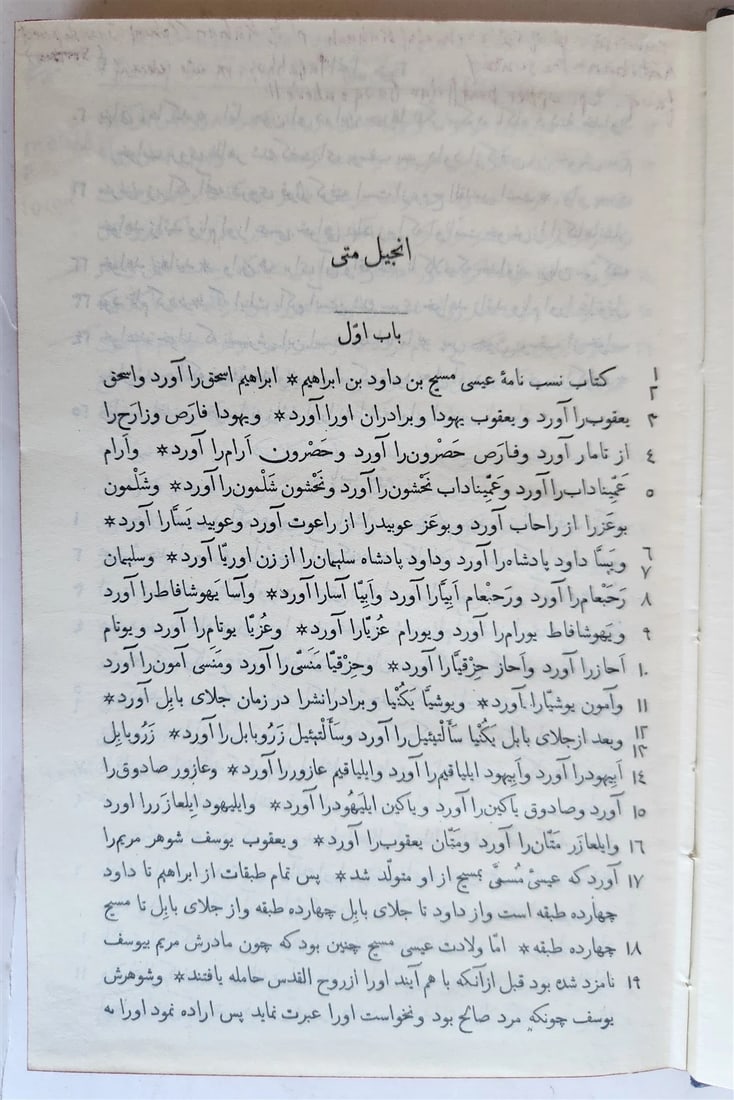 انجیل متی
باب اوّل
١ کتاب نسب نامهٔ عیسی مسیح بن داود بن ابراهیم * ابراهیم اسحق‌را آورد واسحق
٢
٣ یعقوب‌را آورد و یعقوب یهودا وبرادران اورا آورد * ویهودا فارَص وزارَح‌را
٤ از تامار آورد وفارَص حَصْرون‌را آورد وحَصْرون اَرام‌را آورد * واَرام
٥ عَمِّیناداب‌را آورد وعَمِّیناداب نَحْشون‌را آورد ونَحْشون شَلْمون‌را آورد * وشَلْمون
بوعَزرا از راحاب آورد و بوعَز عوبیدرا از راعوت آورد وعوبید یَسَّارا آورد *
٦ ویَسَّا داود پادشاه‌را آورد وداود پادشاه سلیمان‌را از زن اوریّا آورد * وسلیمان
٧
٨ رَحَبْعام‌را آورد ورَحَبْعام اَبِیَّارا آورد واَبِیّا آسارا آورد * وآسا یَهوشافاط‌را آورد
٩ ویَهوشافاط یورام‌را آورد ویورام عُزیّارا آورد * وعُزیّا یوتام‌را آورد و یوتام
١٠ اَحازرا آورد واَحاز حِزْقیَّارا آورد * وحِزْقیّا مَنَسّی‌را آورد ومَنَسی آمون‌را آورد
١١ وآمون یوشیّارا آورد * ویوشیَّا یَکُنْیا و برادرانش‌را در زمان جلای بابِل آورد *
١٢ وبعد ازجلای بابل یَکُنْیا سَأَلْتیئیل‌را آورد وسَأَلْتیئیل زَرُوبابل‌را آورد * زَرُوبابِل
١٣
١٤ اَبیهودرا آورد واَبیهود ایلیاقیم‌را آورد وایلیاقیم عازوررا آورد * وعازور صادوق‌را
١٥ آورد وصادوق یاکین‌را آورد ویاکین ایلَیهُودرا آورد * وایلیهود ایلعازَررا اورد
١٦ وایلعازَر مَتّان‌را آورد ومَتّان یعقوب‌را آورد * ویعقوب یوسف شوهر مریم‌را
١٧ آورد که عیسیٔ مُسمَّی بمسیح از او متولّد شد * پس تمام طبقات از ابراهیم تا داود
چهارده طبقه است واز داود تا جلای بابِل چهارده طبقه واز جلای بابِل تا مسیح
١٨ چهارده طبقه * امّا ولادت عیسی مسیح چنین بود که چون مادرش مریم بیوسف
١٩ نامزد شده بود قبل ازآنکه با هم آیند اورا ازروح القدس حامله یافتند * وشوهرش
یوسف چونکه مرد صالح بود ونخواست اورا عبرت نماید پس اراده نمود اورا به